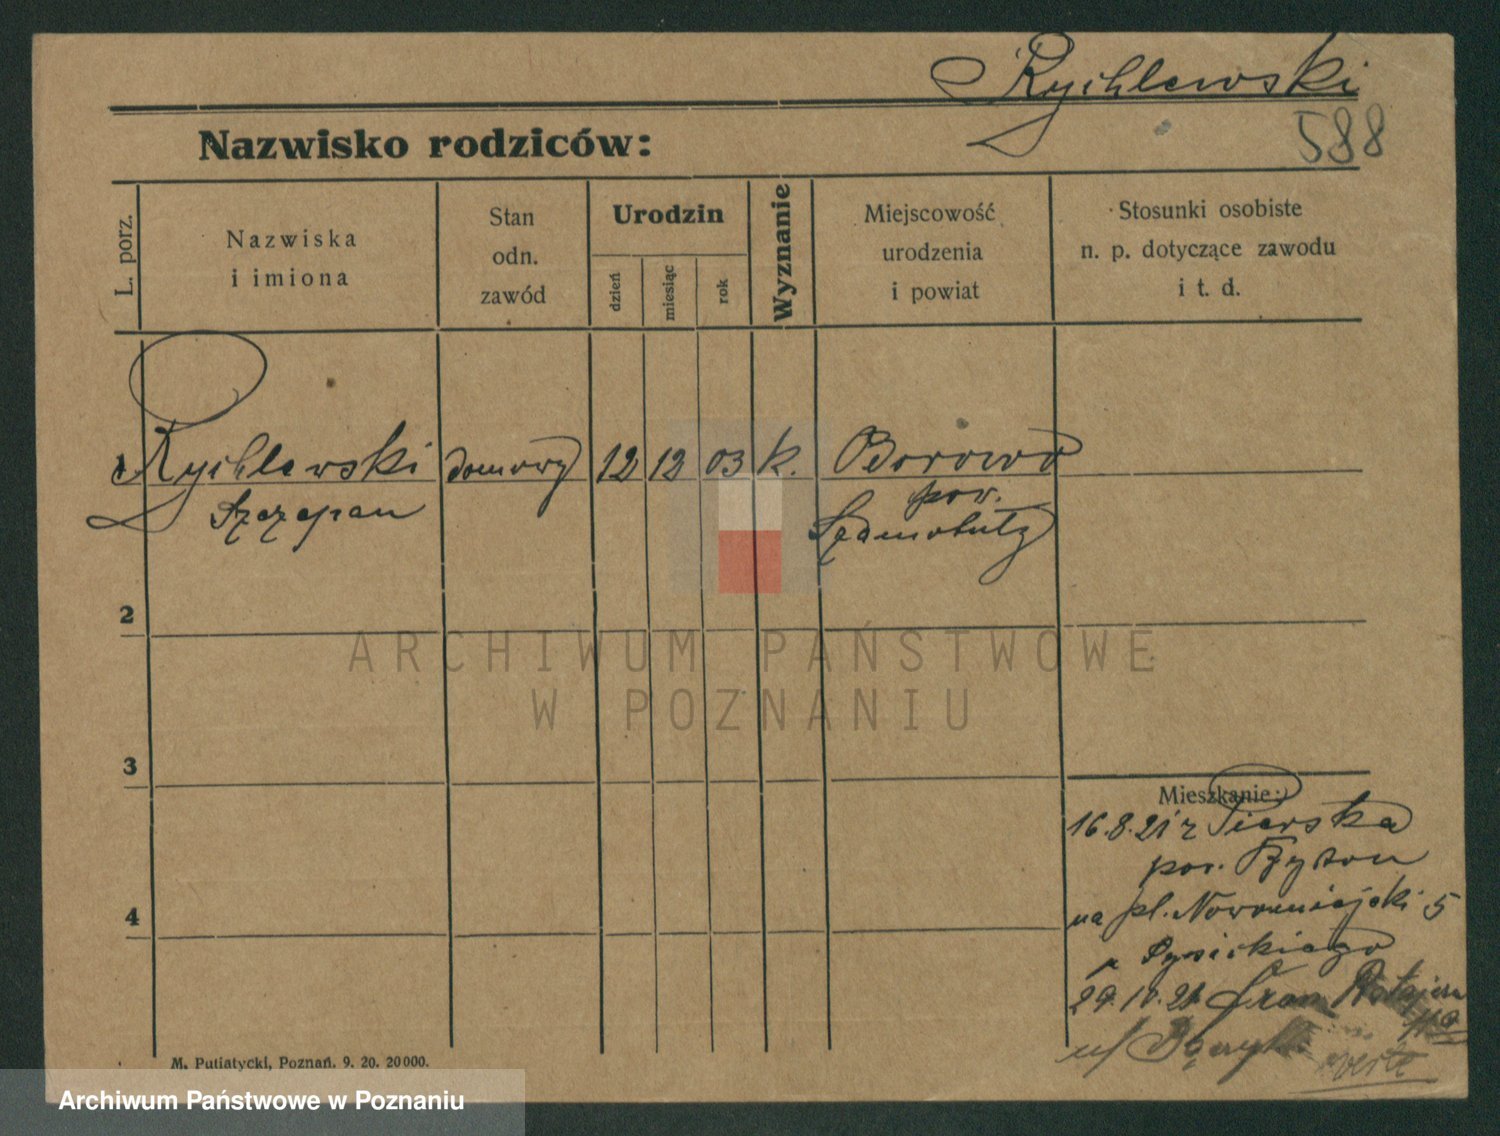 Rychlewski
588
Nazwisko rodziców:
L. porz.
Nazwiska
i imiona
Stan
odn.
zawód
Urodzin
dzień
miesiąc
rok
Wyznanie
Miejscowość
urodzenia
i powiat
Stosunki osobiste
n. p. dotyczące zawodu
i t. d.
1 Rychlewski domowy 12 12 03 k. Borowo
Szczepan
pow.
Szamotuły
2
ARCHIWUM PAŃSTWOWE
W POZNANIU
3
Mieszkanie:
16.8.21 z Pierska
pow.
na pl. Nowomiejski 5
29.
verte
4
M. Putiatycki, Poznań. 9. 20. 20000.
Archiwum Państwowe w Poznaniu